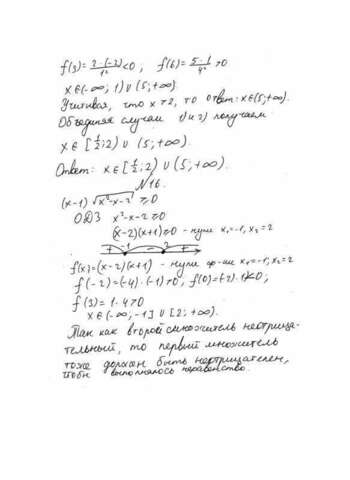 f(3)=\frac{2·(-2)}{1²}<0; f(6)=\frac{5·1}{4²}>0
x∈(-∞; 1)∪(5;+∞).
Учитывая, что x>2, то ответ: x∈(5;+∞).
Объединяя случаи 1) и 2) получаем
x∈[\frac{1}{2};2)∪(5;+∞).
Ответ: x∈[\frac{1}{2};2)∪(5;+∞).
№16.
(x-1)\sqrt{x²-x-2}≥0
ОДЗ x²-x-2≥0
(x-2)(x+1)≥0 - нули x₁=-1; x₂=2
+ -1 - 2 +
f(x)=(x-2)(x+1) - нули ф-ии x₁=-1; x₂=2
f(-2)=(-4)·(-1)>0, f(0)=(-2)·1<0;
f(3)=1·4>0
x∈(-∞;-1]∪[2;+∞).
Так как второй множитель неотрица-
тельный, то первый множитель
тоже должен быть неотрицателен,
чтобы выполнялось неравенство.